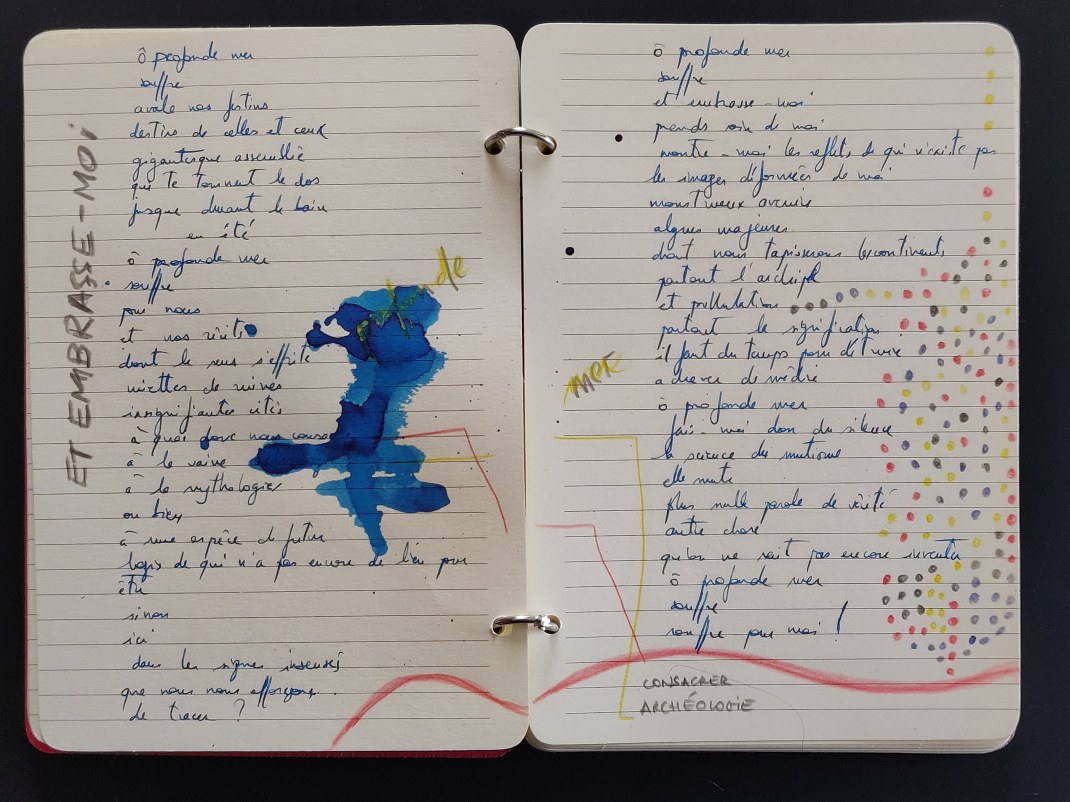 ET EMBRASSE-MOI
ô profonde mer
souffre
avale nos festins
destins de celles et ceux
gigantesque assemblée
qui te tournent le dos
jusque durant le bain
en été
ô profonde mer
souffre
pour nous
et nos récits
dont le sens s'effrite
miettes de ruines
insignifiantes cités
à quoi donc nous
à la
à la mythologie
ou bien
à une espèce de futur
logis de qui n'a pas encore de lieu pour
être
sinon
ici
dans les signes insensés
que nous nous efforçons
de tracer ?
ô profonde mer
souffre
et embrasse-moi
prends soin de moi
montre-moi les reflets de qui n'existe pas
les images déformées de moi
monstrueux
algues majeures
dont nous tapisserons les continents
partout l'archipel
et pullulation
partout la signification
il faut du temps pour détruire
achever de
ô profonde mer
fais-moi don du silence
la science du mutisme
elle mute
plus nulle parole de vérité
autre chose
qu'on ne sait pas encore inventer
ô profonde mer
souffre
souffre pour moi !
MER
CONSACRER
ARCHÉOLOGIE